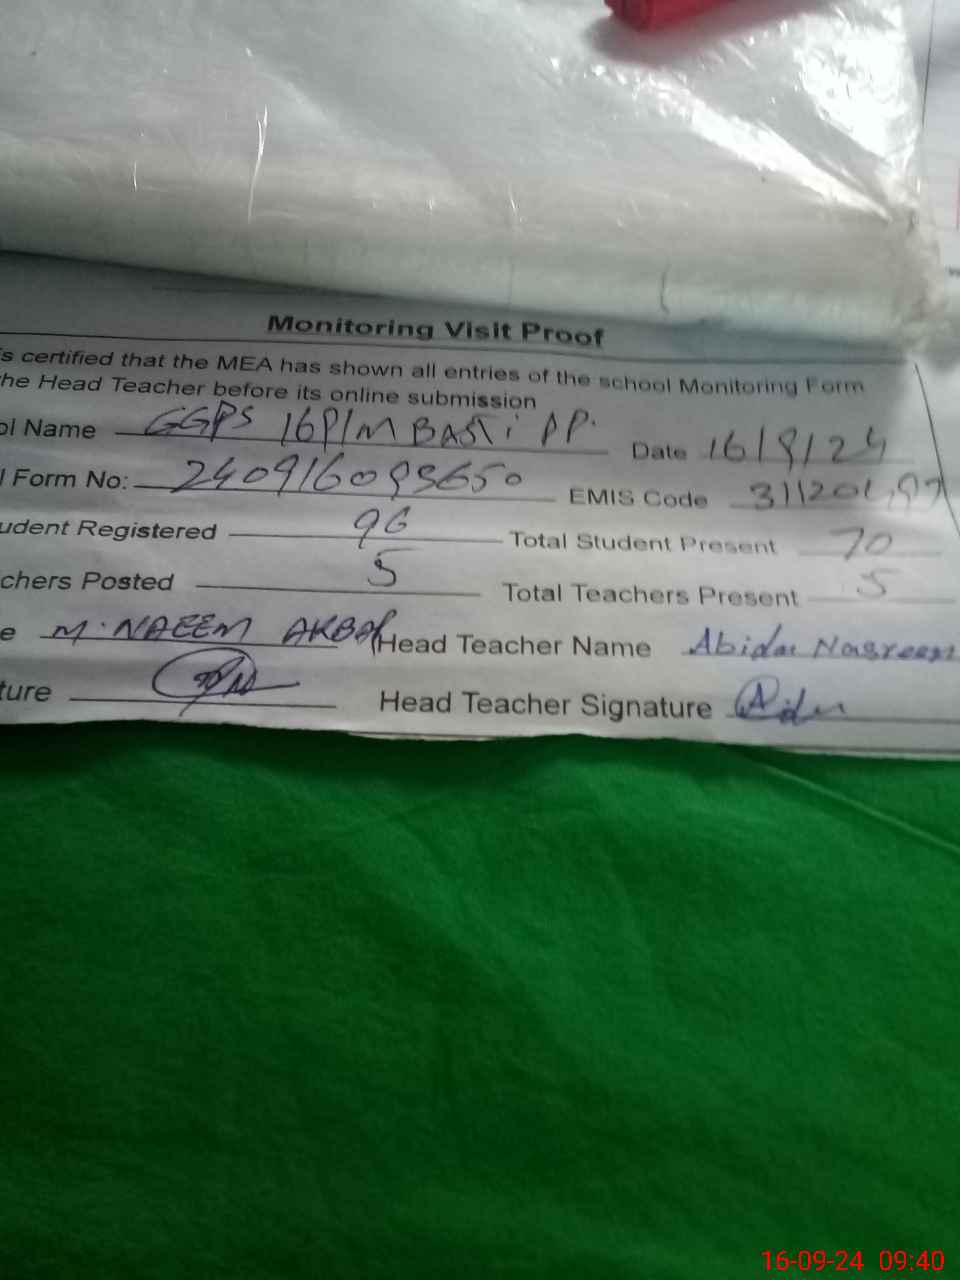 Monitoring Visit Proof
s certified that the MEA has shown all entries of the school Monitoring Form
he Head Teacher before its online submission
ol Name GGPS 16P/M BASTi PP. Date 16/9/24
l Form No: 240916093650 EMIS Code
udent Registered 96 Total Student Present 70
chers Posted 5 Total Teachers Present 5
e M. NAEEM AKBAR Head Teacher Name Abida Nasreen
ture Head Teacher Signature
16-09-24 09:40